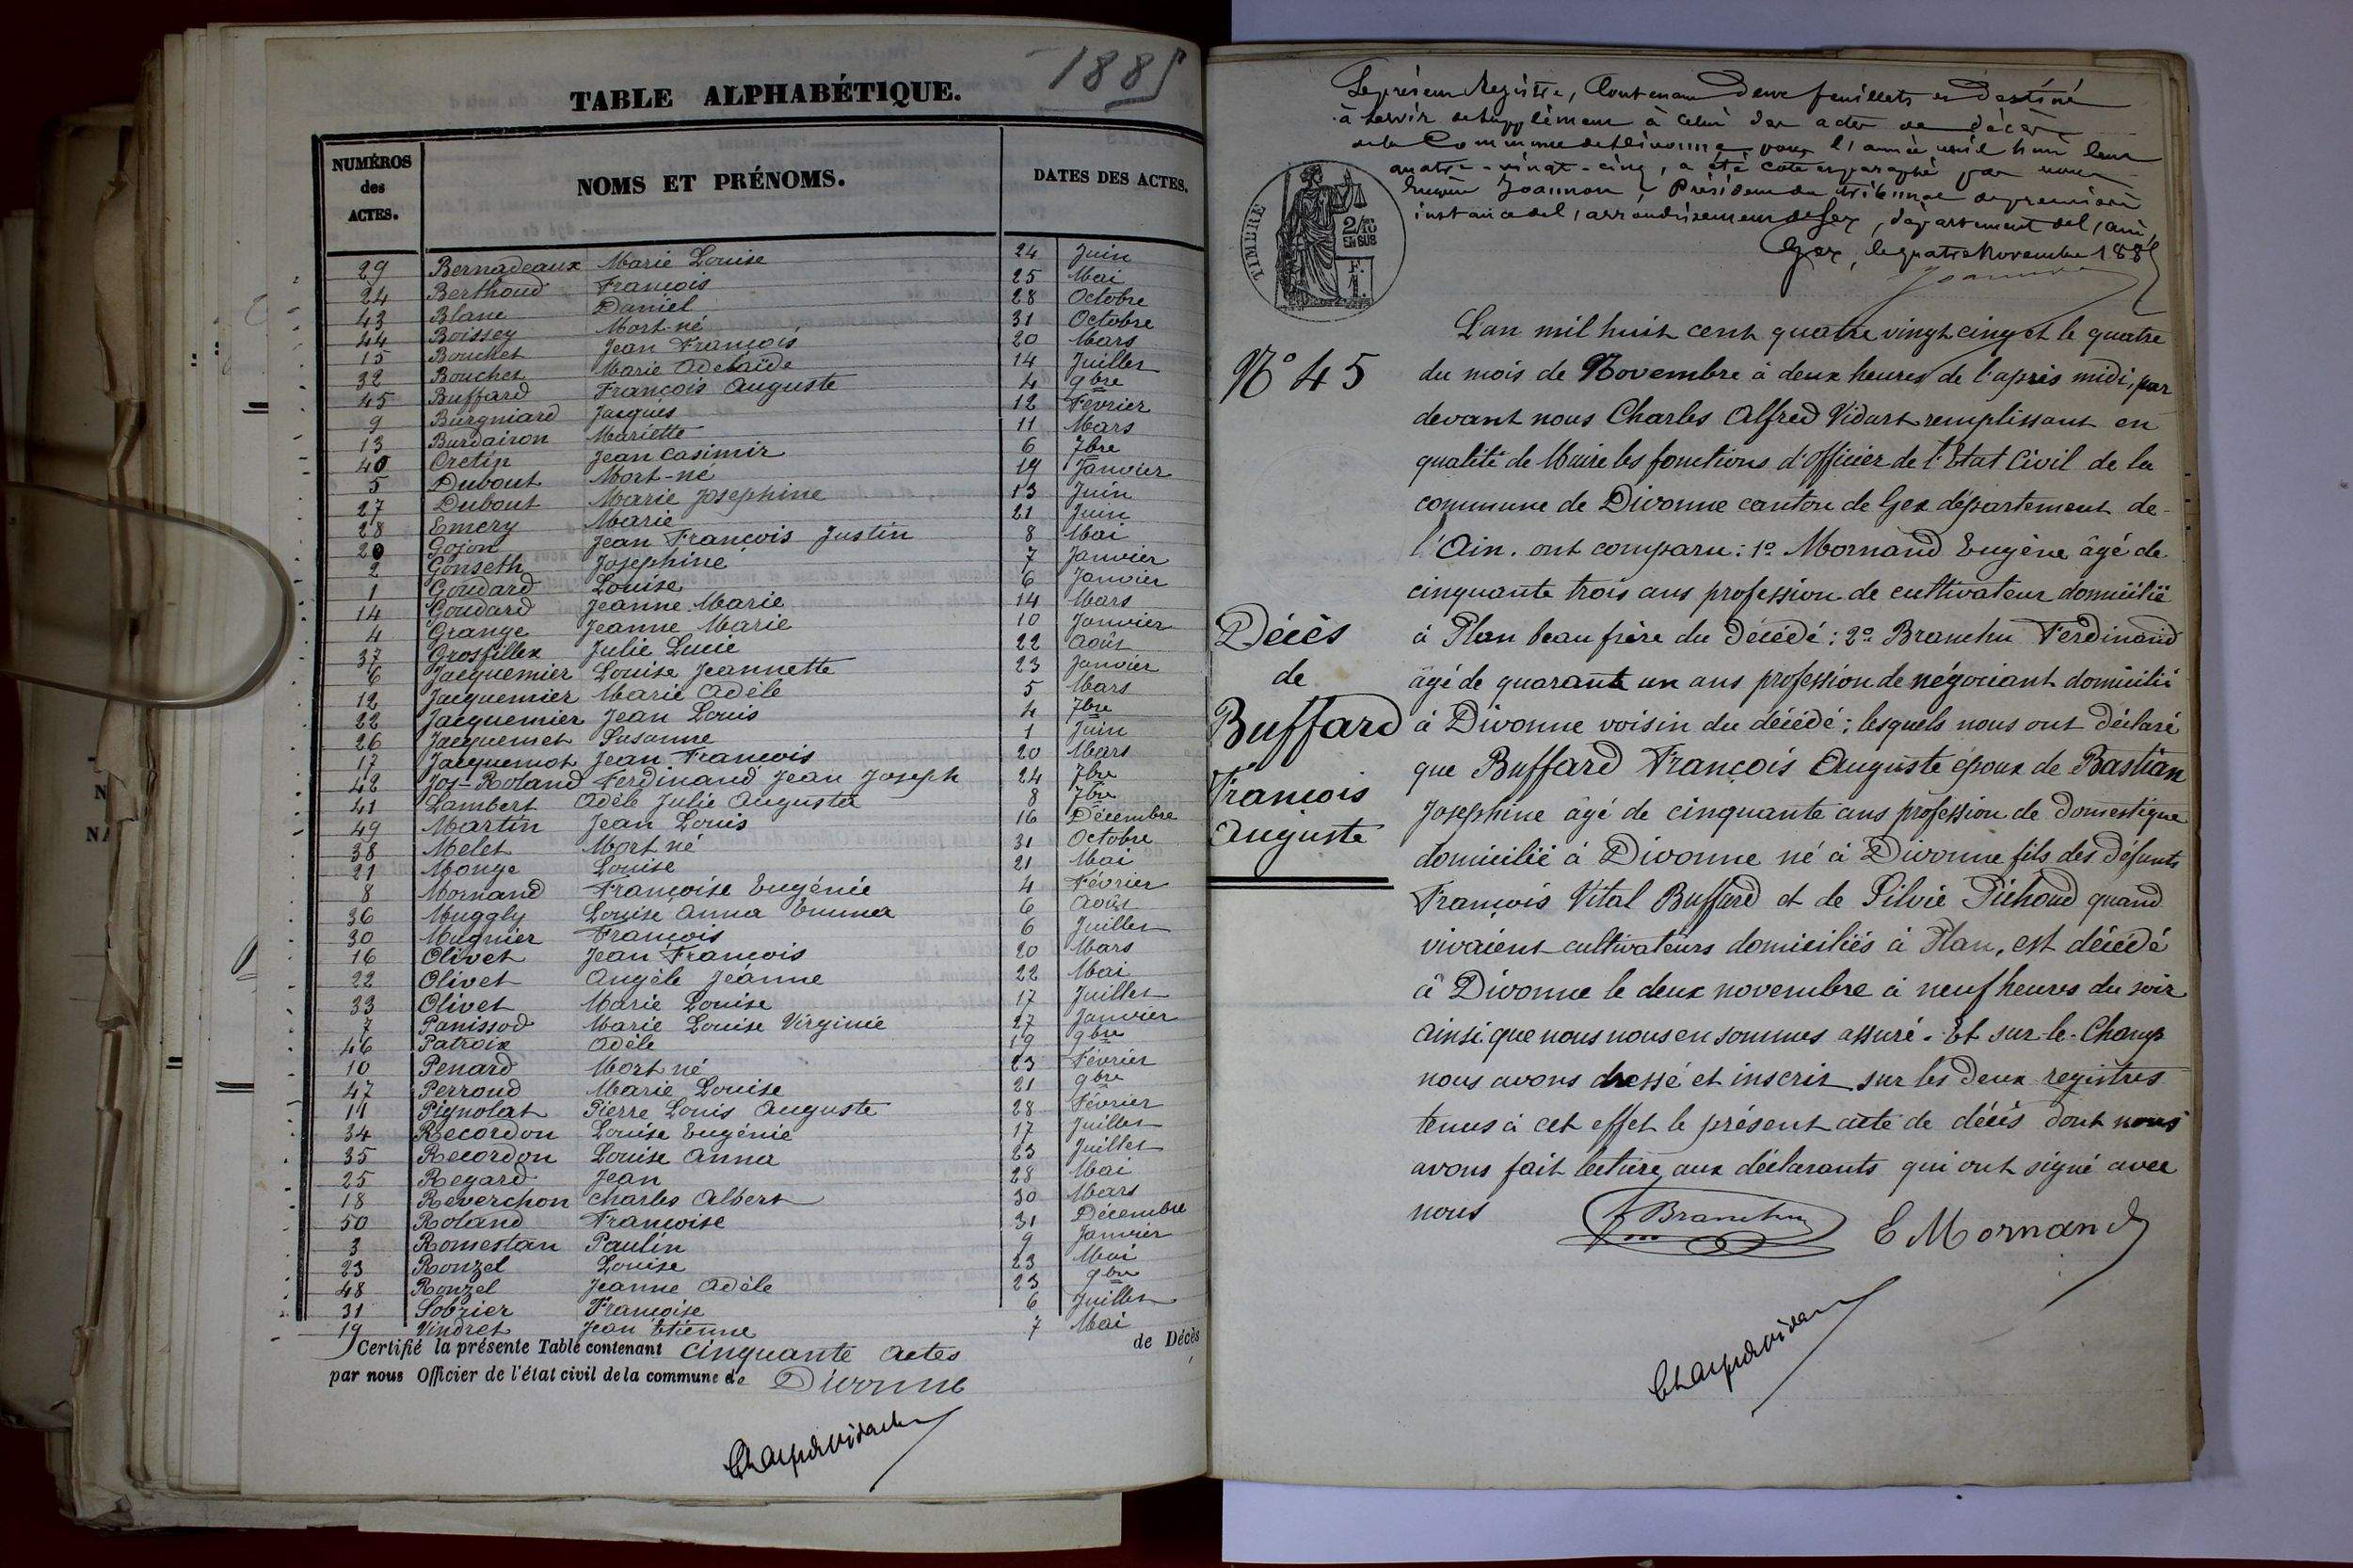 1885
TABLE ALPHABÉTIQUE.
NUMÉROS des ACTES. NOMS ET PRÉNOMS. DATES DES ACTES.
29 Bernadeaux Marie Louise 24 Juin
24 Berthoud François 25 Mai
43 Blanc Daniel 28 Octobre
44 Boissey Mort-né 31 Octobre
15 Bouchet Jean François 20 Mars
32 Bouchet Marie Adelaïde 14 Juillet
45 Buffard François Auguste 4 9bre
9 Burgniard Jacques 12 Février
13 Burdairon Mariette 11 Mars
40 Cretin Jean Casimir 6 7bre
5 Dubout Mort-né 19 Janvier
27 Dubout Marie Josephine 13 Juin
28 Emery Marie 21 Juin
20 Gojon Jean François Justin 8 Mai
2 Gonseth Josephine 7 Janvier
1 Goudard Louise 6 Janvier
14 Goudard Jeanne Marie 14 Mars
4 Grange Jeanne Marie 10 Janvier
37 Grosfillex Julie Lucie 22 Août
6 Jacquemier Louise Jeannette 23 Janvier
12 Jacquemier Marie Adèle 5 Mars
22 Jacquemier Jean Louis 4 7bre
26 Jacquemet Susanne 1 Juin
17 Jacquemot Jean François 20 Mars
42 Jos-Roland Ferdinand Jean Joseph 24 7bre
41 Lambert Adèle Julie Augusta 8 7bre
49 Martin Jean Louis 16 Décembre
38 Melet Mort né 31 Octobre
21 Monge Louise 21 Mai
8 Mornand Françoise Eugénie 4 Février
36 Muggly Louise Anna Emma 6 Août
30 Mugnier François 6 Juillet
16 Olivet Jean François 20 Mars
22 Olivet Angèle Jeanne 22 Mai
33 Olivet Marie Louise 17 Juillet
7 Panissod Marie Louise Virginie 27 Janvier
46 Patroix Adèle 19 9bre
10 Penard Mort né 23 Février
47 Perroud Marie Louise 21 9bre
11 Pignolat Pierre Louis Auguste 28 Février
34 Recordon Louise Eugénie 17 Juillet
35 Recordon Louise Anna 23 Juillet
25 Regard Jean 28 Mai
18 Reverchon Charles Albert 30 Mars
50 Roland Françoise 31 Décembre
3 Romestan Paulin 9 Janvier
23 Ronzel Louise 23 Mai
48 Ronzel Jeanne Adèle 23 9bre
31 Sobrier Françoise 6 Juillet
19 Vindret Jean Etienne 7 Mai
Certifié la présente Table contenant Cinquante actes de Décès
par nous Officier de l'état civil de la commune de Divonne
Le présent Registre, Contenant deux feuillets est destiné
à servir de supplément à celui des actes de décès
de la Commune de Divonne pour l'année mil huit cent
quatre-vingt-cinq, a été coté et paraphé par nous
Joannon, Président du tribunal de première
instance de l'arrondissement de Gex, département de l'ain
Gex, le quatre Novembre 1885
TIMBRE
2/10 EN SUS
F. 1.
N° 45
Décès
de
Buffard
François
Auguste
L'an mil huit cent quatre vingt cinq et le quatre
du mois de Novembre à deux heures de l'après midi, par
devant nous Charles Alfred Vidart remplissant en
qualité de Maire les fonctions d'officier de l'Etat Civil de la
commune de Divonne canton de Gex département de
l'Ain. ont comparu: 1° Mornand Eugène âgé de
cinquante trois ans profession de cultivateur domicilié
à Plan beau frère du décédé: 2° Branchu Ferdinand
âgé de quarante un ans profession de négociant domicilié
à Divonne voisin du décédé; lesquels nous ont déclaré
que Buffard François Auguste époux de Bastian
Josephine âgé de cinquante ans profession de domestique
domicilié à Divonne né à Divonne fils des défunts
François Vital Buffard et de Silvie Pichoud quand
vivaient cultivateurs domiciliés à Plan, est décédé
à Divonne le deux novembre à neuf heures du soir
ainsi que nous nous en sommes assuré. Et sur-le-Champ
nous avons dressé et inscrit sur les deux registres
tenus à cet effet le présent acte de décès dont nous
avons fait lecture aux déclarants qui ont signé avec
nous
F Branchu E Mornand